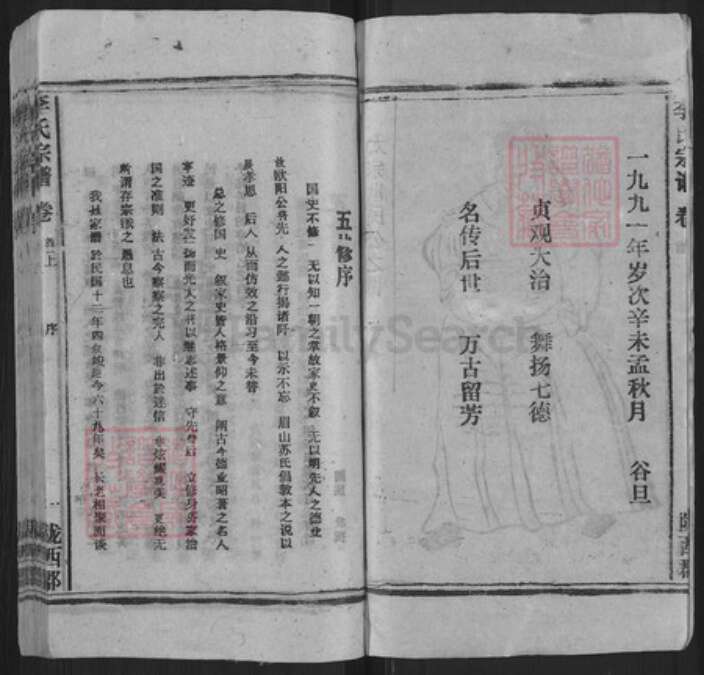 李氏宗谱 卷
一九九一年岁次辛未孟秋月 谷旦
贞观大治 舞扬七德
名传后世 万古留芳
五修序
国史不修 无以知一朝之掌故家史不叙 无以明先人之德业
故欧阳公将先人之懿行揭诸阡 以示不忘 眉山苏氏倡敦本之说以
展孝思 后人从而仿效之沿习至今未替
总之修国史 叙家史皆人格景仰之意 阐古今德业昭著之名人
事迹 更好发扬而光大之并以继志述事 守先 立修身齐家治
国之准则 法古今察察之完人 非出於迷信 非炫耀 更绝无
所谓存宗族之愚息也
我姓家谱於民国十二年四修竣迄今六十九年矣 长老相聚而谈
李氏宗谱 卷 首上 序 一 陇西郡
FamilySearch